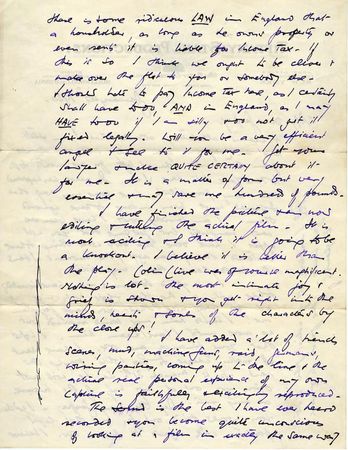 There is some ridiculous LAW in England that
a householder, as long as he owns property or
even rents it is liable for Income Tax. If
this is so I think we ought to be clever &
make over the flat to you or somebody else.
I should hate to pay Income Tax here, as I certainly
shall have to do, AND in England, as I may
HAVE to do if I am silly & do not get it
fixed legally. Will you be a very efficient
angel & see to it for me. Get your
lawyer & make QUITE CERTAIN about it
for me. It is a matter of form but very
essential & may save me hundreds of pounds.
I have finished the picture & am now
editing & cutting the actual film. It is
most exciting & I think it is going to be
a knockout. I believe it is better than
the play. Colin Clive was of course magnificent.
Nothing is lost. The most intimate joy &
grief is shown & you get right into the
minds, hearts & souls of the characters by
the close ups!
I have added a lot of trench
scenes, mud, machine guns, raid, Germans,
wiring parties, coming up to the line & the
actual real personal experience of my own
Captive is faithfully & excitingly reproduced.
The sound is the best I have ever heard
recorded & you become quite unconscious
of looking at a film in exactly the same way